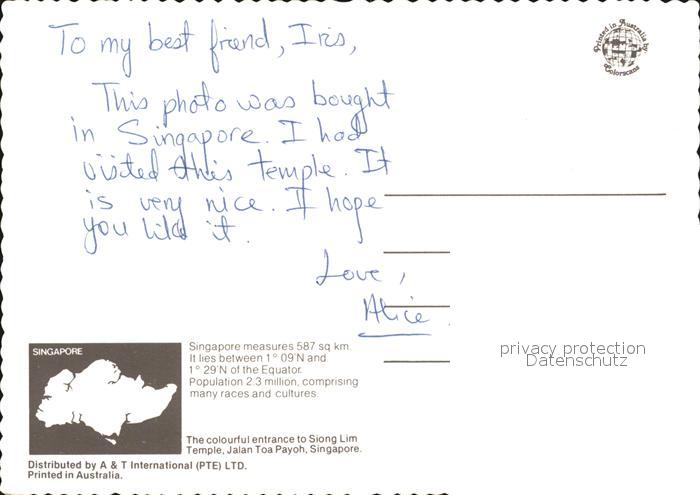 To my best friend, Iris,
This photo was bought
in Singapore. I had
visited this temple. It
is very nice. I hope
you liked it.
Love,
Alice.
Printed in Australia by
Colorscans
privacy protection
Datenschutz
SINGAPORE
Singapore measures 587 sq km.
It lies between 1° 09'N and
1° 29'N of the Equator.
Population 2.3 million, comprising
many races and cultures.
The colourful entrance to Siong Lim
Temple, Jalan Toa Payoh, Singapore.
Distributed by A & T International (PTE) LTD.
Printed in Australia.